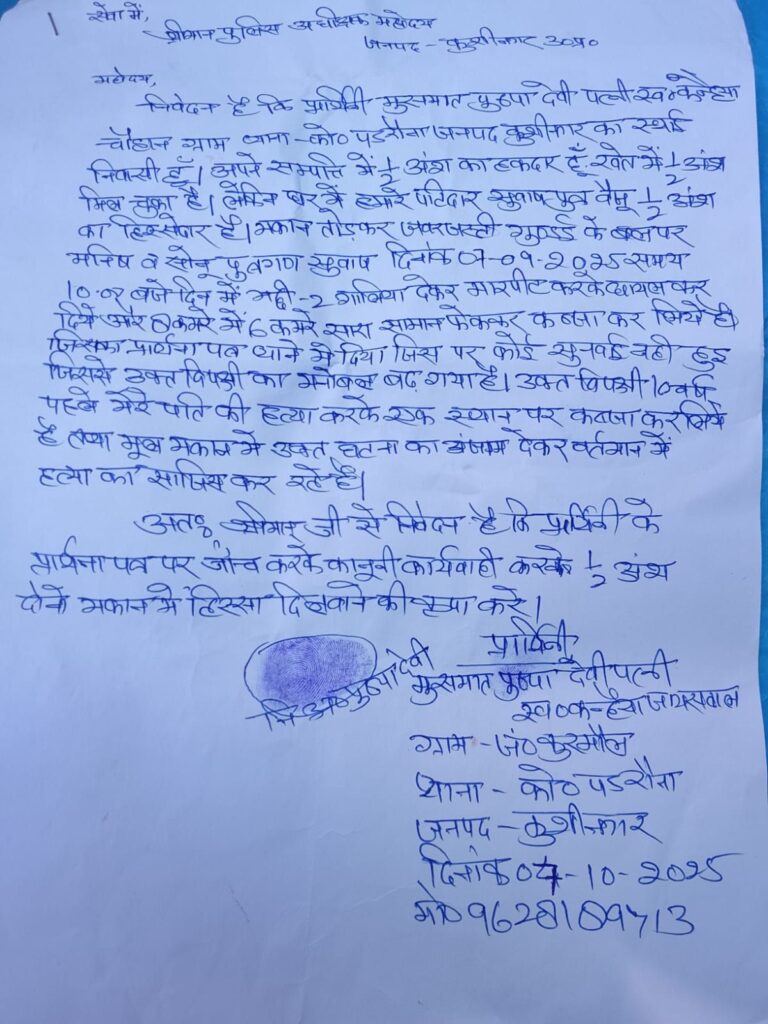 सेवा में,
श्रीमान पुलिस अधीक्षक महोदय
जनपद - कुशीनगर उ०प्र०
महोदय,
निवेदन है कि प्रार्थिनी मुसमात पुष्पा देवी पत्नी स्व० कन्हैया
चौहान ग्राम थाना - को० पडरौना जनपद कुशीनगर का स्थाई
निवासी हूँ। अपने सम्पत्ति में 1/2 अंश का हकदार हूँ खेत में 1/2 अंश
मिल चुका है। लेकिन घर में हमारे पटिदार सुवाष पुत्र 1/2 अंश
का हिस्सेदार है। मकान तोड़कर जबरजस्ती के बल पर
मनिष व सोनू पुत्रगण सुवाष दिनांक 07-09-2025 समय
10.01 बजे दिन में भद्दी-2 गालिया देकर मारपीट करके घायल कर
दिये और 8 कमरे में 6 कमरे सारा सामान फेककर कब्जा कर लिये है।
जिसका प्रार्थना पत्र थाने में दिया जिस पर कोई सुनवई नही हुइ
जिससे उक्त विपक्षी का मनोबल बढ़ गया है। उक्त विपक्षी 10 वर्ष
पहले मेरे पति की हत्या करके एक स्थान पर कब्जा कर लिये
है तथा मूल मकान मे उक्त घटना का अंजाम देकर वर्तमान में
हत्या का साजिस कर रहे है।
अतः श्रीमान् जी से निवेदन है कि प्रार्थिनी के
प्रार्थना पत्र पर जाँच करके कानूनी कार्यवाही करके 1/2 अंश
दोनो मकान मे हिस्सा दिलवाने की कृपा करे।
प्रार्थिनी
नि०अं० पुष्पा देवी
मुसमात पुष्पा देवी पत्नी
स्व० कन्हैया जायसवाल
ग्राम - जं० कुरमौल
थाना - को० पडरौना
जनपद - कुशीनगर
दिनांक 04-10-2025
मो० 9628189713